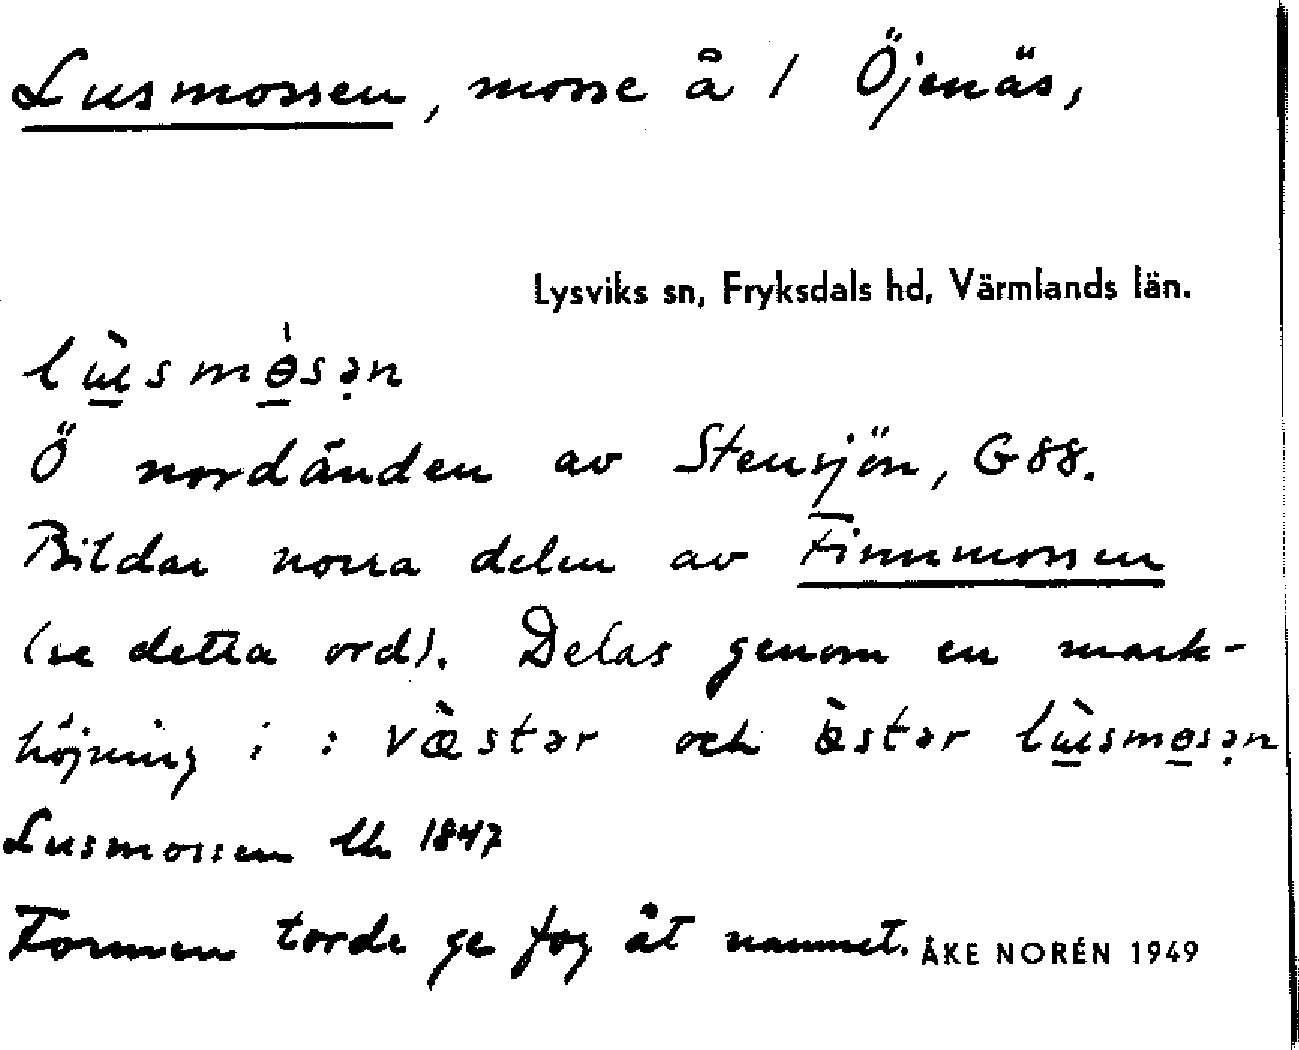 Lusmossen, mosse å 1 Öjenäs,
Lysviks sn, Fryksdals hd, Värmlands län.
lùsmòsən
Ö nordänden av Stensjön, G88.
Bildar norra delen av Finnmossen
(se detta ord). Delas genom en mark-
höjning i : væ̀stər och ɵ̀stər lùsmɵsən
Lusmossen lh 1847
Formen torde ge fog åt namnet. ÅKE NORÉN 1949